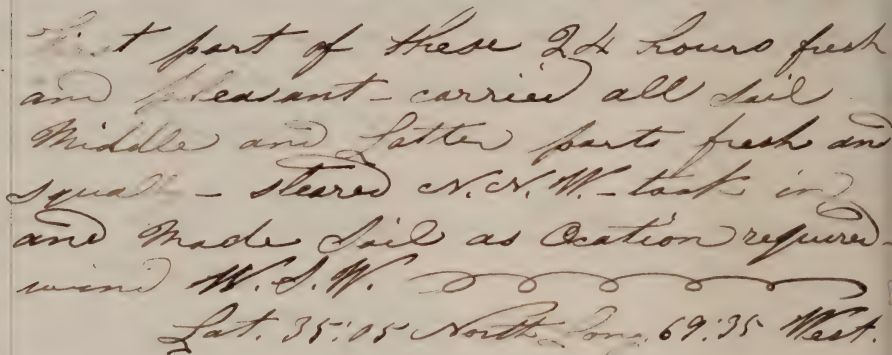 First part of these 24 hours fresh
and pleasant - carried all sail
Middle and Latter parts fresh and
squall - steared N.N.W. - took in
and made sail as Ocation required
wind W.S.W.
Lat. 35:05 North Long. 69:35 West.